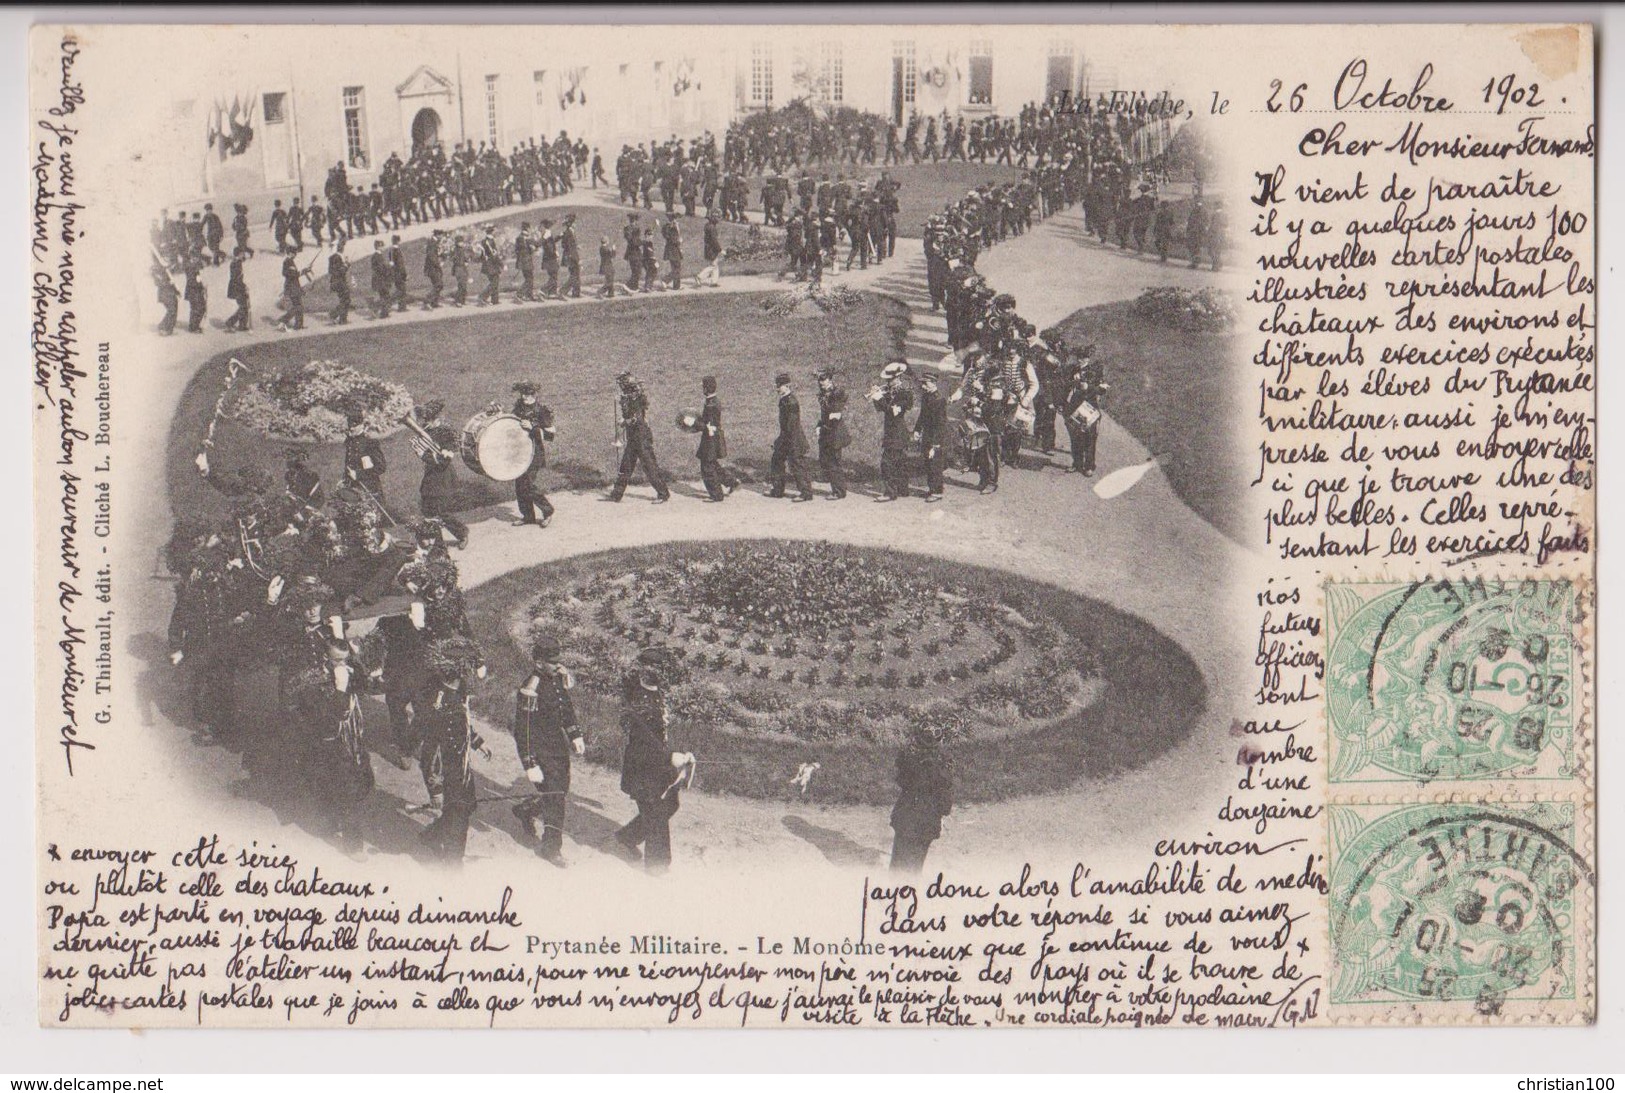 La Flèche, le 26 Octobre 1902.
Cher Monsieur Fernand.
Il vient de paraître
il y a quelques jours 100
nouvelles cartes postales
illustrées représentant les
châteaux des environs et
différents exercices exécutés
par les élèves du Prytanée
militaire, aussi je m'em-
presse de vous envoyer celle
ci que je trouve une des
plus belles. Celles repré-
sentant les exercices faits
nos
futurs
officiers
sont
au
nombre
d'une
douzaine
environ.
ayez donc alors l'amabilité de me dire
dans votre réponse si vous aimez
mieux que je continue de vous x
x envoyer cette série
ou plutôt celle des chateaux.
Papa est parti en voyage depuis dimanche
dernier, aussi je travaille beaucoup et
ne quitte pas l'atelier un instant, mais, pour me récompenser mon père m'envoie des pays où il se trouve de
jolies cartes postales que je joins à celles que vous m'envoyez et que j'aurai le plaisir de vous montrer à votre prochaine
visite à la Flèche. Une cordiale poignée de main
Prytanée Militaire. - Le Monôme
Veuillez je vous prie nous rappeler au bon souvenir de Monsieur et
Madame Chevallier.
G. Thibault, édit. - Cliché L. Bouchereau
SARTHE
26 -10
02
5
POSTES
SARTHE
5
POSTES
www.delcampe.net
christian100